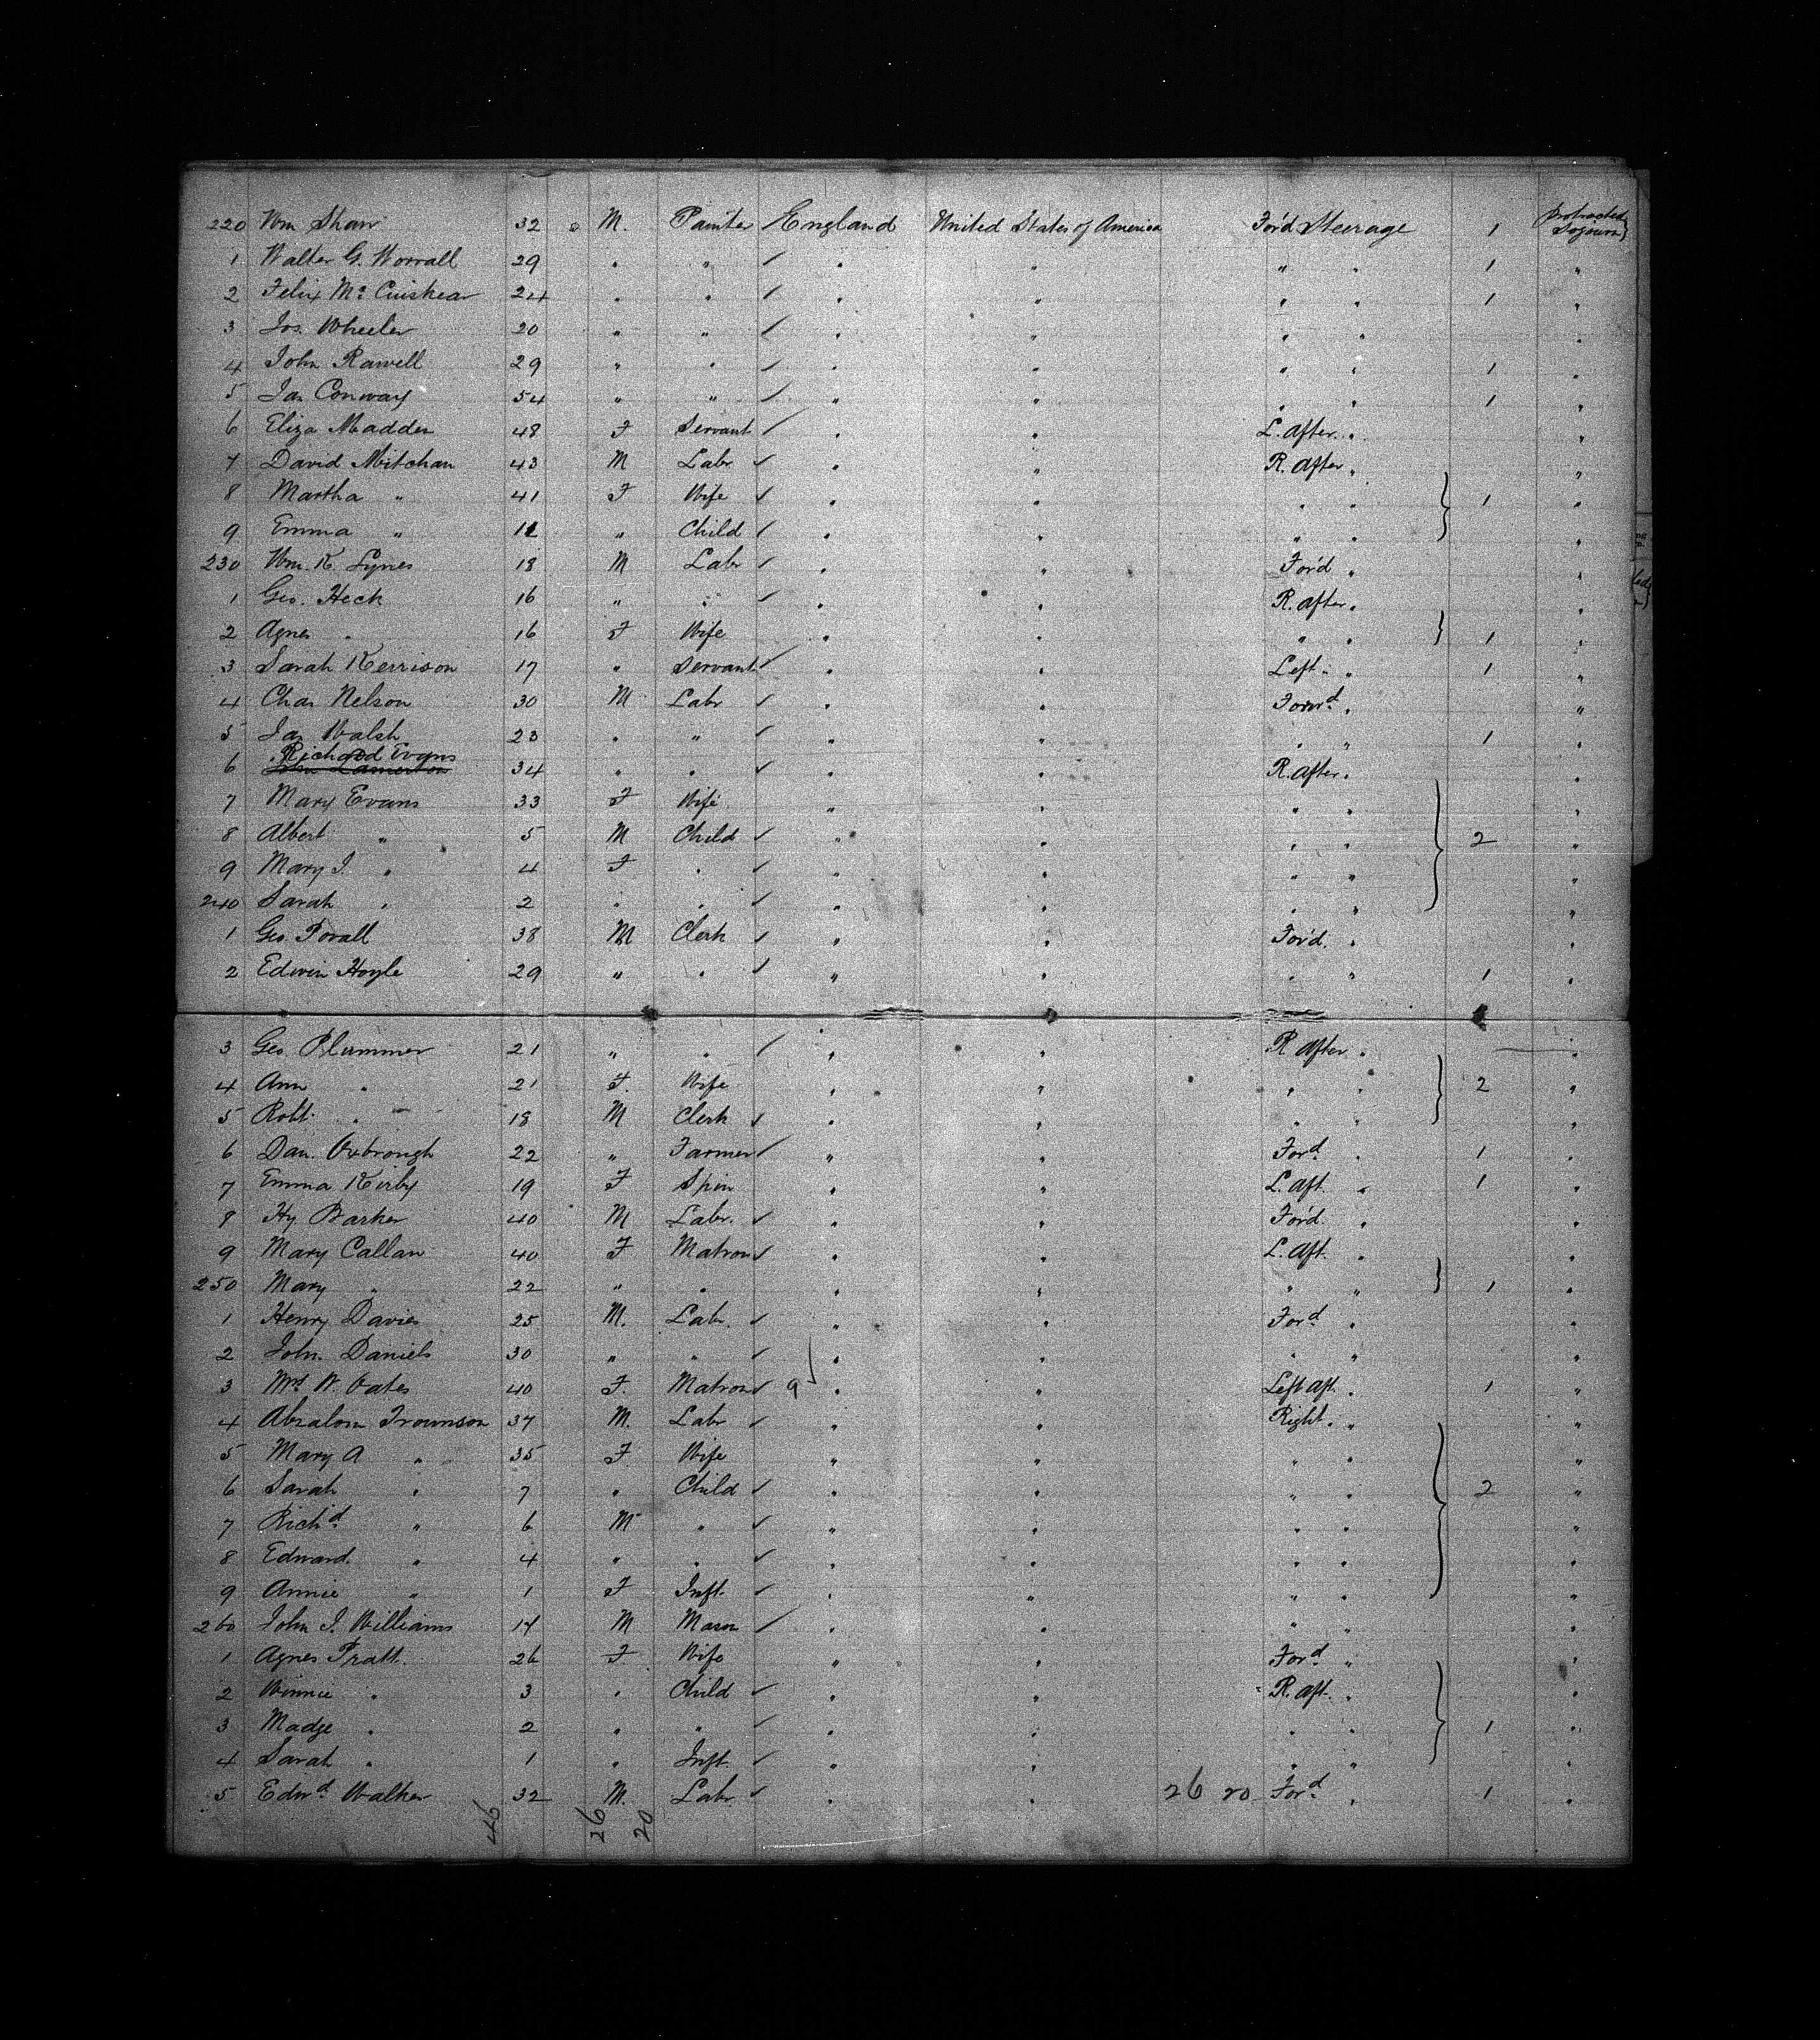 220 Wm Shaw 32 M. Painter England United States of America Fo'd Steerage 1 Protracted Sojourn }
1 Walter G. Worrall 29 " " " " " " 1 "
2 Felix Mc Cuiskear 24 " " " " " " 1 "
3 Jos. Wheeler 20 " " " " " " "
4 John Rawell 29 " " " " " " 1 "
5 Jas Conway 54 " " " " " " 1 "
6 Eliza Madden 48 F Servant " " L. after " "
7 David Mitchan 43 M Labr " " R. after " "
8 Martha " 41 F Wife " " " " } 1 "
9 Emma " 11 " Child " " " " "
230 Wm. K. Lynes 18 M Labr " " Fo'd " "
1 Geo. Heck 16 " " " " R. after " "
2 Agnes " 16 F Wife " " " " } 1 "
3 Sarah Kerrison 17 " Servant " " Left " " 1 "
4 Chas Nelson 30 M Labr " " Forwd. " "
5 Jas Walsh 23 " " " " " " 1 "
Richard Evans
6 34 " " " " R. after " "
7 Mary Evans 33 F Wife " " " " "
8 Albert " 5 M Child " " " " } 2 "
9 Mary J. " 4 F " " " " " "
240 Sarah " 2 " " " " " " "
1 Geo. Povall 38 M Clerk " " For'd. " "
2 Edwin Hoyle 29 " " " " " " 1 "
3 Geo Plummer 21 " " " " R after " "
4 Ann " 21 F. Wife " " " " } 2 "
5 Robt. " 18 M Clerk " " " " "
6 Dan. Oxbrough 22 " Farmer " " Ford " 1 "
7 Emma Kirby 19 F Spin " " L. aft. " 1 "
8 Hy Barker 40 M Labr. " " Fo'd. " "
9 Mary Callan 40 F Matron " " L. Aft. " "
250 Mary " 22 " " " " " " } 1 "
1 Henry Davies 25 M. Labr. " " Ford " "
2 John Daniels 30 " " " " " " "
3 Mrs W. Oates 40 F. Matron 9 " " Left aft. " 1 "
4 Absalom Trounson 37 M. Labr " " Right. " "
5 Mary A " 35 F. Wife " " " " "
6 Sarah " 7 " Child " " " " } 2 "
7 Richd " 6 M " " " " " "
8 Edward. " 4 " " " " " " "
9 Annie " 1 F Inft. " " " " "
260 John J. Williams 14 M Mason " " " " "
1 Agnes Pratt. 26 F Wife " " Ford " "
2 Winnie " 3 " Child " " R. aft. " "
3 Madge " 2 " " " " " " } 1 "
4 Sarah " 1 " Inft. " " " " "
5 Edwd Walker 32 M. Labr. " " 26 20 Ford " 1 "
46 26 20